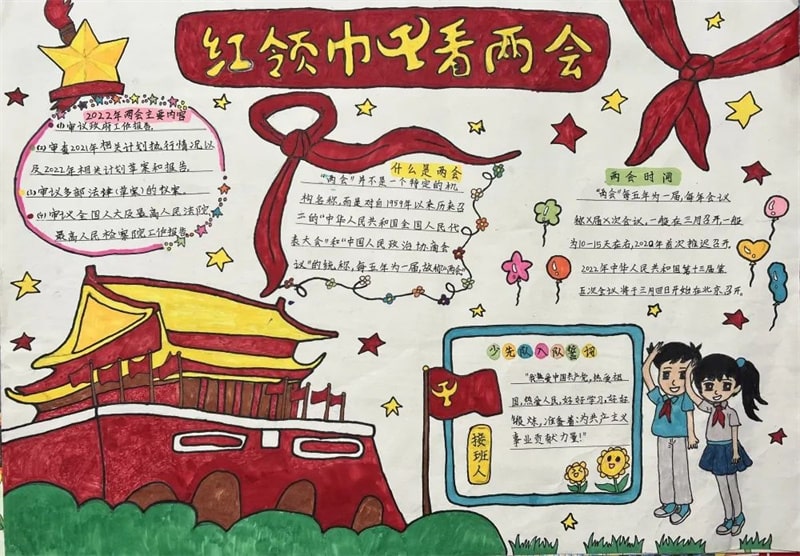 红领巾看两会
2022年两会主要内容
(1)审议政府工作报告.
(2)审查2021年相关计划执行情况以
及2022年相关计划草案和报告.
(3)审议多部法律(草案)的议案.
(4)审议全国人大及最高人民法院
最高人民检察院工作报告
什么是两会
"两会"并不是一个特定的机
构名称,而是对自1959年以来历来召
"中华人民共和国全国人民代
表大会"和"中国人民政治协商会
议"的统称,每五年为一届,故称"两会"
两会时间
"两会"每五年为一届,每年会议
称X届X次会议,一般在三月召开,一般
为10-15天左右,2020年首次推迟召开.
2022年中华人民共和国第十三届
五次会议将于三月四日开始在北京召开.
少先队入队誓词
"我热爱中国共产党,热爱祖
国,热爱人民,好好学习,好好
锻炼,准备着:为共产主义
事业贡献力量!"
接班人